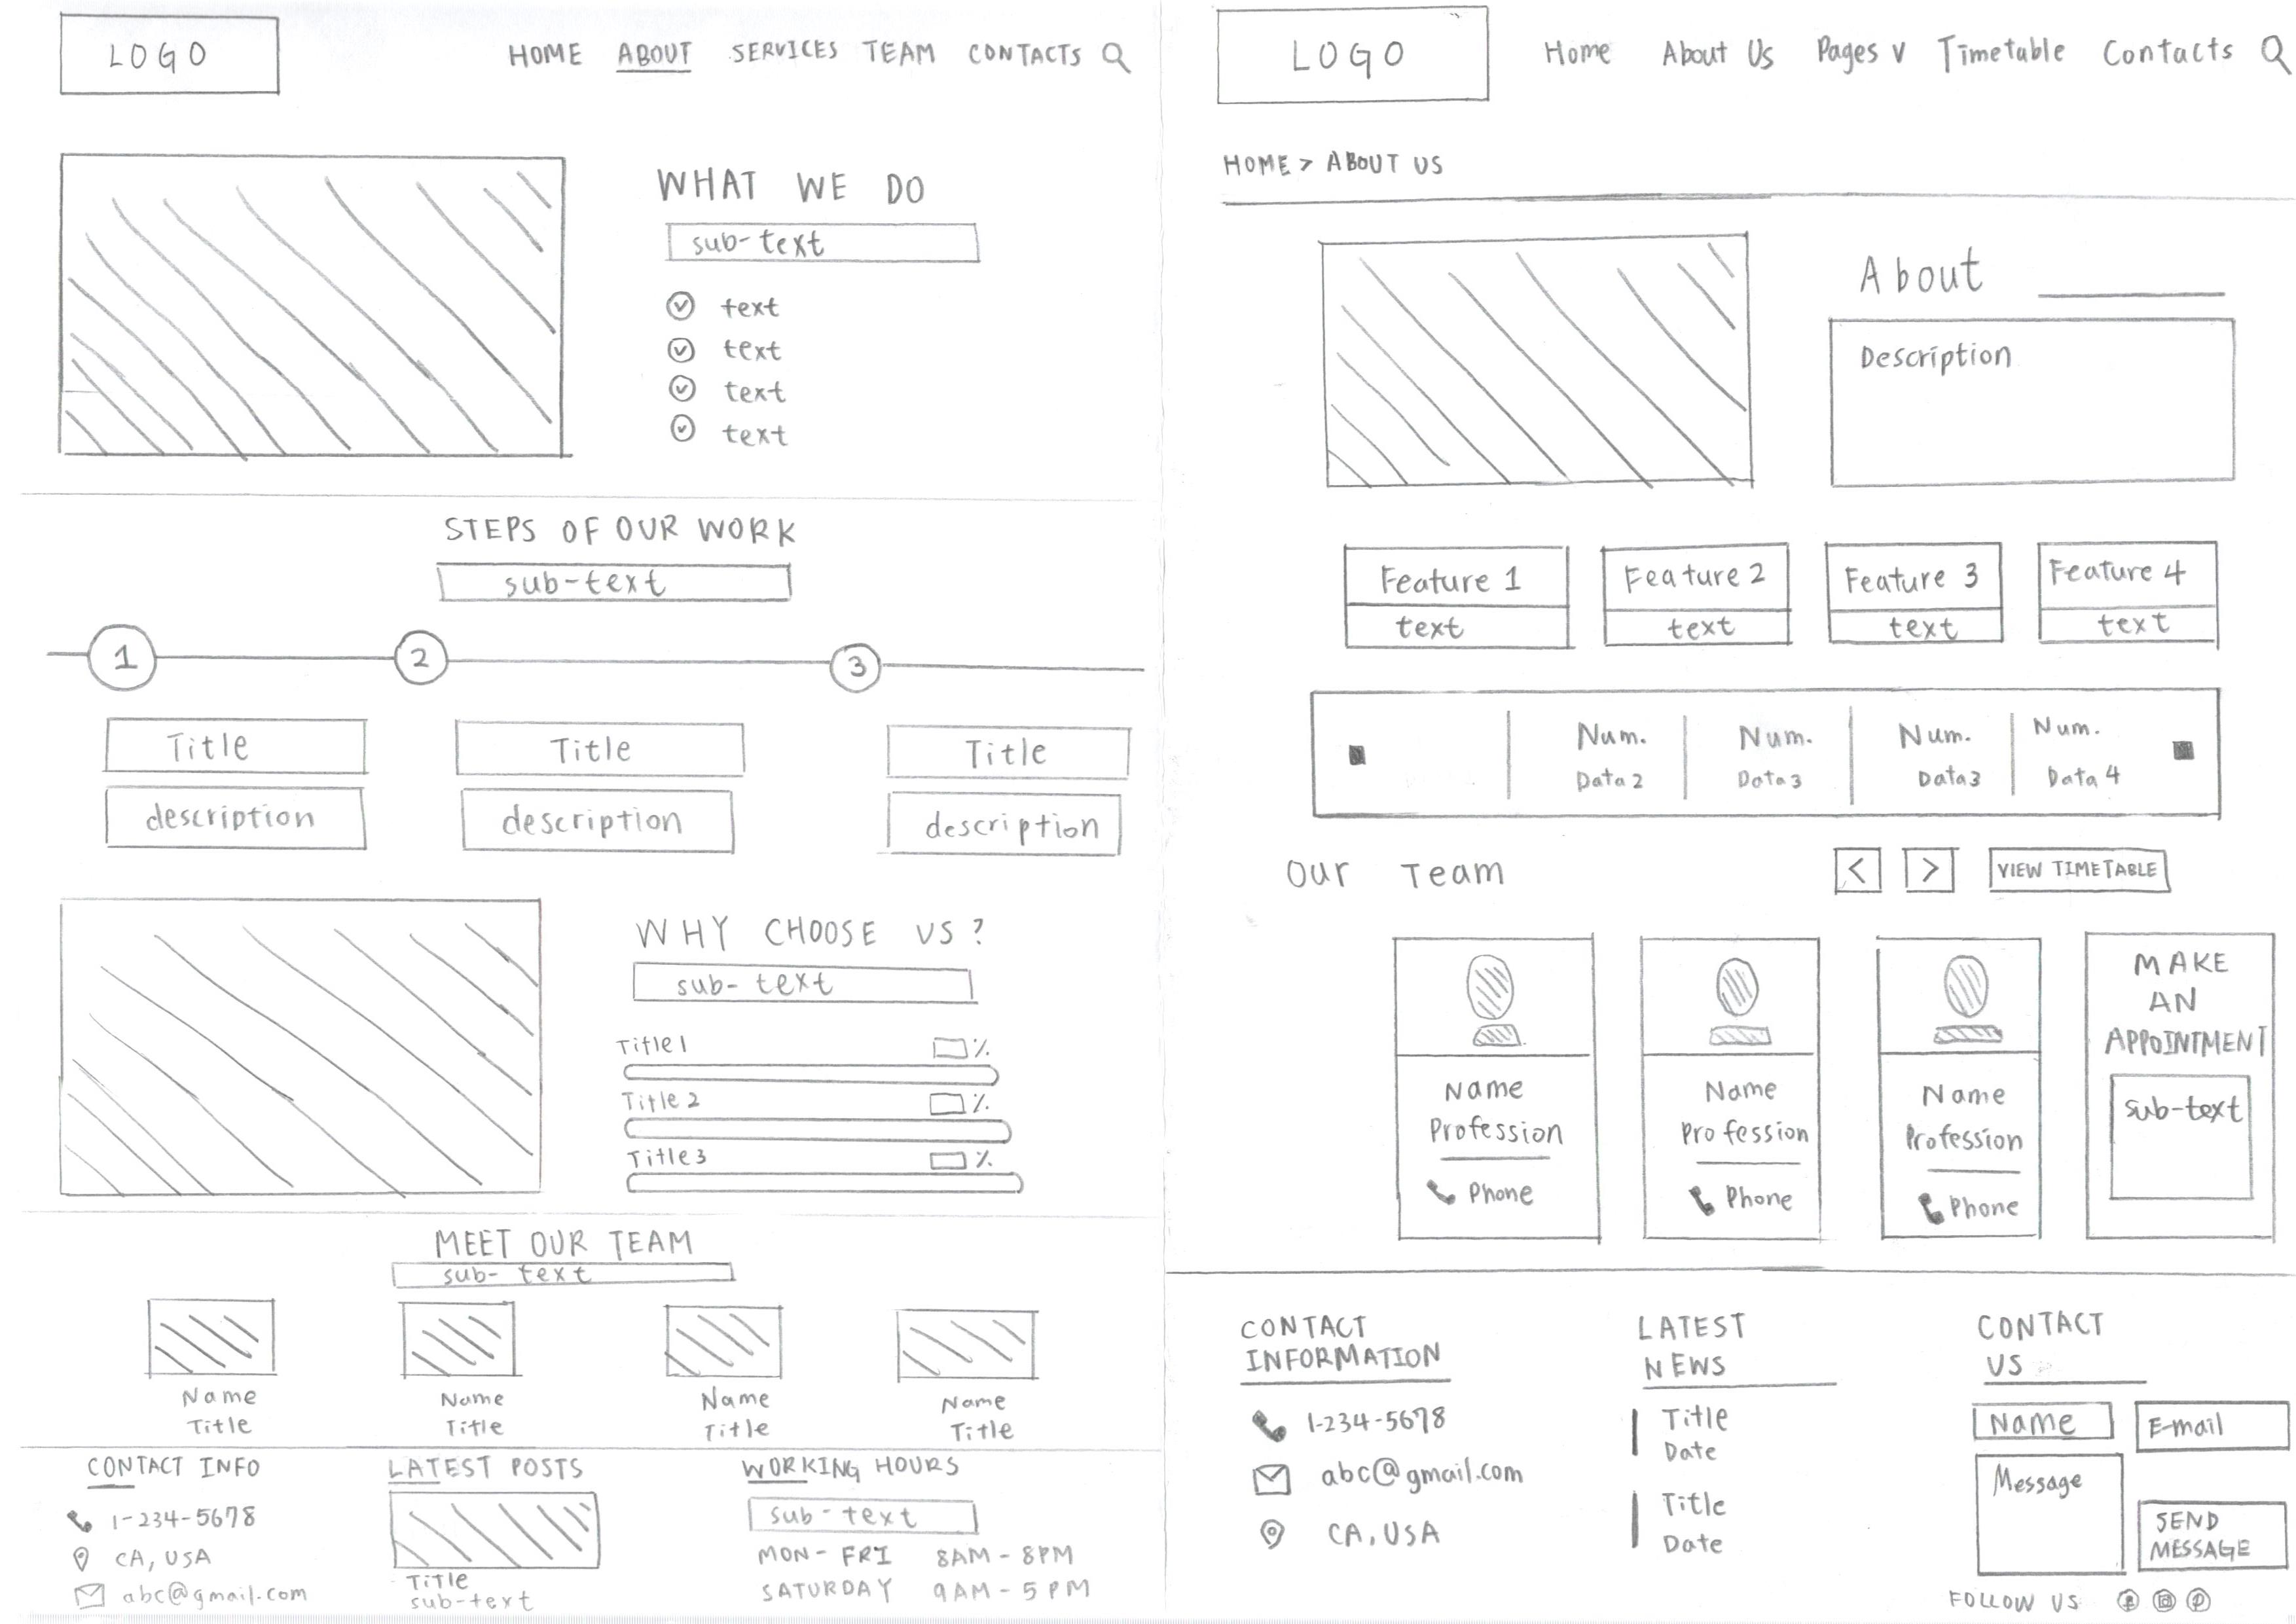 LOGO
HOME ABOUT SERVICES TEAM CONTACTS
WHAT WE DO
sub-text
text
text
text
text
STEPS OF OUR WORK
sub-text
1 2 3
Title Title Title
description description description
WHY CHOOSE US?
sub-text
Title 1 %
Title 2 %
Title 3 %
MEET OUR TEAM
sub-text
Name Name Name Name
Title Title Title Title
CONTACT INFO
1-234-5678
CA, USA
abc@gmail.com
LATEST POSTS
Title
sub-text
WORKING HOURS
sub-text
MON- FRI 8AM - 8PM
SATURDAY 9AM - 5PM
LOGO
Home About Us Pages v Timetable Contacts
HOME > ABOUT US
About
Description
Feature 1 Feature 2 Feature 3 Feature 4
text text text text
Num. Num. Num. Num.
Data 2 Data 3 Data 3 Data 4
Our Team < > VIEW TIMETABLE
Name
Profession
Phone
Name
Profession
Phone
Name
Profession
Phone
MAKE
AN
APPOINTMENT
sub-text
CONTACT
INFORMATION
1-234-5678
abc@gmail.com
CA, USA
LATEST
NEWS
Title
Date
Title
Date
CONTACT
US
Name E-mail
Message
SEND
MESSAGE
FOLLOW US